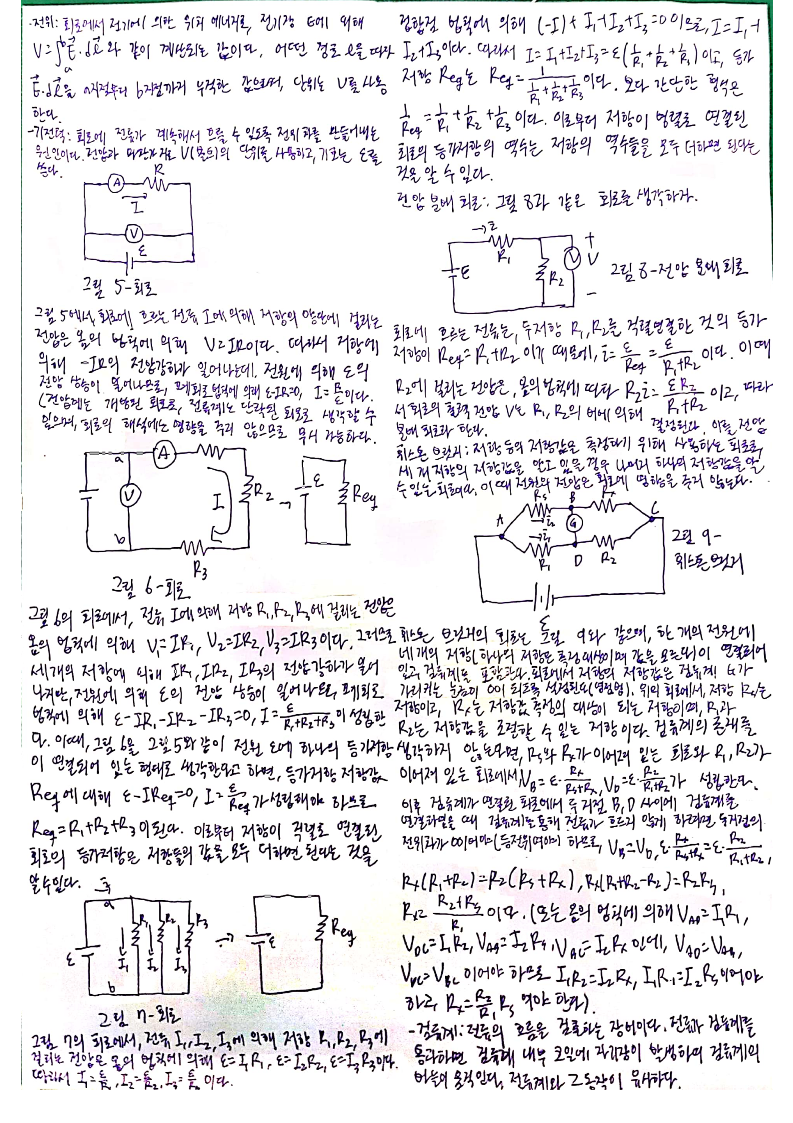 ·전위: 회로에서 전기에 의한 위치 에너지로, 전기장 E에 의해
V=∫ₐᵇE⃗·dl⃗와 같이 계산되는 값이다. 어떤 경로 l을 따라
E⃗·dl⃗을 a지점부터 b지점까지 누적한 값으로서, 단위는 V를 사용
한다.
-기전력: 회로에 전류가 계속해서 흐를 수 있도록 전위차를 만들어내는
원인이다. 전압과 마찬가지로 V(볼트)의 단위를 사용하고, 기호는 ε를
쓴다.
A R
I
V
ε
그림 5-회로
그림 5에서, 회로에 흐르는 전류 I에 의해 저항의 양단에 걸리는
전압은 옴의 법칙에 의해 V=IR이다. 따라서 저항에
의해 -IR의 전압강하가 일어나는데, 전원에 의해 ε의
전압 상승이 일어나므로, 폐회로 법칙에 의해 ε-IR=0, I=ε/R이다.
(전압계는 개방된 회로로, 전류계는 단락된 회로로 생각할 수
있으며, 회로의 해석에는 영향을 주지 않으므로 무시 가능하다.
a A
V I R2 → ε Req
b
R3
그림 6-회로
그림 6의 회로에서, 전류 I에 의해 저항 R1, R2, R3에 걸리는 전압은
옴의 법칙에 의해 V1=IR1, V2=IR2, V3=IR3이다. 그러므로
세개의 저항에 의해 IR1, IR2, IR3의 전압강하가 일어
나지만, 전원에 의해 ε의 전압 상승이 일어나므로, 폐회로
법칙에 의해 ε-IR1-IR2-IR3=0, I=ε/(R1+R2+R3)이 성립한
다. 이때, 그림 6을 그림 5와 같이 전원 ε에 하나의 등가저항
이 연결되어 있는 형태로 생각한다고 하면, 등가저항 저항값
Req에 대해 ε-IReq=0, I=ε/Req가 성립해야 하므로
Req=R1+R2+R3이 된다. 이로부터 저항이 직렬로 연결된
회로의 등가저항은 저항들의 값을 모두 더하면 된다는 것을
알 수 있다.
a
ε R1 R2 R3 → ε Req
I1 I2 I3
b
그림 7-회로
그림 7의 회로에서, 전류 I1, I2, I3에 의해 저항 R1, R2, R3에
걸리는 전압은 옴의 법칙에 의해 ε=I1R1, ε=I2R2, ε=I3R3이다.
따라서 I1=ε/R1, I2=ε/R2, I3=ε/R3이다.
접합점 법칙에 의해 (-I)+I1+I2+I3=0이므로, I=I1+
I2+I3이다. 따라서 I=I1+I2+I3=ε(1/R1+1/R2+1/R3)이고, 등가
저항 Req는 Req=1/(1/R1+1/R2+1/R3)이다. 보다 간단한 형식은
1/Req=1/R1+1/R2+1/R3이다. 이로부터 저항이 병렬로 연결된
회로의 등가저항의 역수는 저항의 역수들을 모두 더하면 된다는
것을 알 수 있다.
전압 분배 회로: 그림 8과 같은 회로를 생각하자.
→i
R1 +
ε R2 V V
-
그림 8-전압 분배 회로
회로에 흐르는 전류는, 두저항 R1, R2를 직렬연결한 것의 등가
저항이 Req=R1+R2 이기 때문에, i=ε/Req=ε/(R1+R2)이다. 이때
R2에 걸리는 전압은, 옴의 법칙에 따라 R2i=εR2/(R1+R2)이고, 따라
서 회로의 출력 전압 V는 R1, R2의 비에 의해 결정된다. 이를 전압
분배 회로라 한다.
휘스톤 브릿지: 저항 등의 저항값을 측정하기 위해 사용하는 회로로,
세 개 저항의 저항값을 알고 있을 경우 나머지 하나의 저항값을 알
수 있는 회로이며, 이 때 전원의 전압은 회로에 영향을 주지 않는다.
Rs B Rx
A i2 G C
i1
R1 D R2
ε
그림 9-
휘스톤 브릿지
휘스톤 브릿지의 회로는 그림 9와 같으며, 한 개의 전원에
네개의 저항(하나의 저항은 측정 대상이며 값을 모른다)이 연결되어
있고 검류계를 포함한다. 회로에서 저항의 저항값은 검류계 G가
가리키는 눈금이 0이 되도록 설정된다(영점법). 위의 회로에서, 저항 Rs는
저항이고, Rx는 저항값 측정의 대상이 되는 저항이며, R1과
R2는 저항값을 조절할 수 있는 저항이다. 검류계의 존재를
생각하지 않는다면, Rs와 Rx가 이어져 있는 회로와 R1, R2가
이어져 있는 회로에서, VB=ε·Rx/(Rs+Rx), VD=ε·R2/(R1+R2)가 성립한다.
이후 검류계가 연결된 회로에서 두 지점 B, D 사이에 검류계를
연결하였을 때 검류계를 통해 전류가 흐르지 않게 하려면 두 지점의
전위차가 0이어야(등전위여야) 하므로, VB=VD, ε·Rx/(Rs+Rx)=ε·R2/(R1+R2),
Rx(R1+R2)=R2(Rs+Rx), Rx(R1+R2-R2)=R2Rs,
Rx=R2+Rs/R1이다. (또는 옴의 법칙에 의해 VAD=I1R1,
VDC=I1R2, VAB=I2Rs, VBC=I2Rx 인데, VAD=VAB,
VDC=VBC 이어야 하므로 I1R2=I2Rx, I1R1=I2Rs이어야
하고, Rx=R2/R1 Rs 여야 한다).
-검류계: 전류의 흐름을 검출하는 장치이다. 전류가 검류계를
통과하면 검류계 내부 코일에 자기장이 발생하여 검류계의
바늘이 움직인다. 전류계와 그 동작이 유사하다.